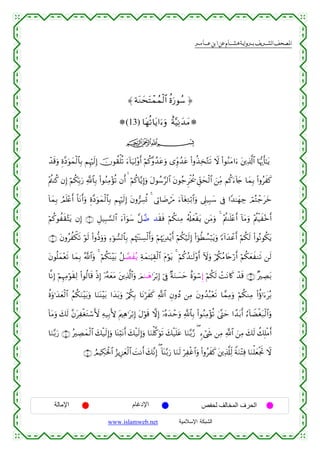 المصحف الشريف برواية هشام عن ابن عامر
﴿ سُورَةُ ٱلْمُمْتَحَنَةِ ﴾
*مَدَنِيَّةٌ وَءَايَاتُهَا (13)*
بِسْمِ ٱللَّهِ ٱلرَّحْمَٰنِ ٱلرَّحِيمِ
يَٰٓأَيُّهَا ٱلَّذِينَ ءَامَنُوا۟ لَا تَتَّخِذُوا۟ عَدُوِّى وَعَدُوَّكُمْ أَوْلِيَآءَ تُلْقُونَ إِلَيْهِم بِٱلْمَوَدَّةِ وَقَدْ
كَفَرُوا۟ بِمَا جَآءَكُم مِّنَ ٱلْحَقِّ يُخْرِجُونَ ٱلرَّسُولَ وَإِيَّاكُمْ أَن تُؤْمِنُوا۟ بِٱللَّهِ رَبِّكُمْ إِن كُنتُمْ
خَرَجْتُمْ جِهَٰدًا فِى سَبِيلِى وَٱبْتِغَآءَ مَرْضَاتِى تُسِرُّونَ إِلَيْهِم بِٱلْمَوَدَّةِ وَأَنَا۠ أَعْلَمُ بِمَآ
أَخْفَيْتُمْ وَمَآ أَعْلَنتُمْ وَمَن يَفْعَلْهُ مِنكُمْ فَقَد ضَّلَّ سَوَآءَ ٱلسَّبِيلِ ۝ إِن يَثْقَفُوكُمْ
يَكُونُوا۟ لَكُمْ أَعْدَآءً وَيَبْسُطُوٓا۟ إِلَيْكُمْ أَيْدِيَهُمْ وَأَلْسِنَتَهُم بِٱلسُّوٓءِ وَوَدُّوا۟ لَوْ تَكْفُرُونَ ۝
لَن تَنفَعَكُمْ أَرْحَامُكُمْ وَلَآ أَوْلَٰدُكُمْ يَوْمَ ٱلْقِيَٰمَةِ يُفَصَّلُ بَيْنَكُمْ وَٱللَّهُ بِمَا تَعْمَلُونَ
بَصِيرٌ ۝ قَدْ كَانَتْ لَكُمْ إِسْوَةٌ حَسَنَةٌ فِىٓ إِبْرَٰهَٰمَ وَٱلَّذِينَ مَعَهُۥٓ إِذْ قَالُوا۟ لِقَوْمِهِمْ إِنَّا
بُرَءَٰٓؤُا۟ مِنكُمْ وَمِمَّا تَعْبُدُونَ مِن دُونِ ٱللَّهِ كَفَرْنَا بِكُمْ وَبَدَا بَيْنَنَا وَبَيْنَكُمُ ٱلْعَدَٰوَةُ
وَٱلْبَغْضَآءُ أَبَدًا حَتَّىٰ تُؤْمِنُوا۟ بِٱللَّهِ وَحْدَهُۥٓ إِلَّا قَوْلَ إِبْرَٰهِيمَ لِأَبِيهِ لَأَسْتَغْفِرَنَّ لَكَ وَمَآ
أَمْلِكُ لَكَ مِنَ ٱللَّهِ مِن شَىْءٍ رَّبَّنَا عَلَيْكَ تَوَكَّلْنَا وَإِلَيْكَ أَنَبْنَا وَإِلَيْكَ ٱلْمَصِيرُ ۝ رَبَّنَا
لَا تَجْعَلْنَا فِتْنَةً لِّلَّذِينَ كَفَرُوا۟ وَٱغْفِرْ لَنَا رَبَّنَآ إِنَّكَ أَنتَ ٱلْعَزِيزُ ٱلْحَكِيمُ ۝
الحرف المخالف لحفص الإدغام الإمالة
الشبكة الإسلامية www.islamweb.net